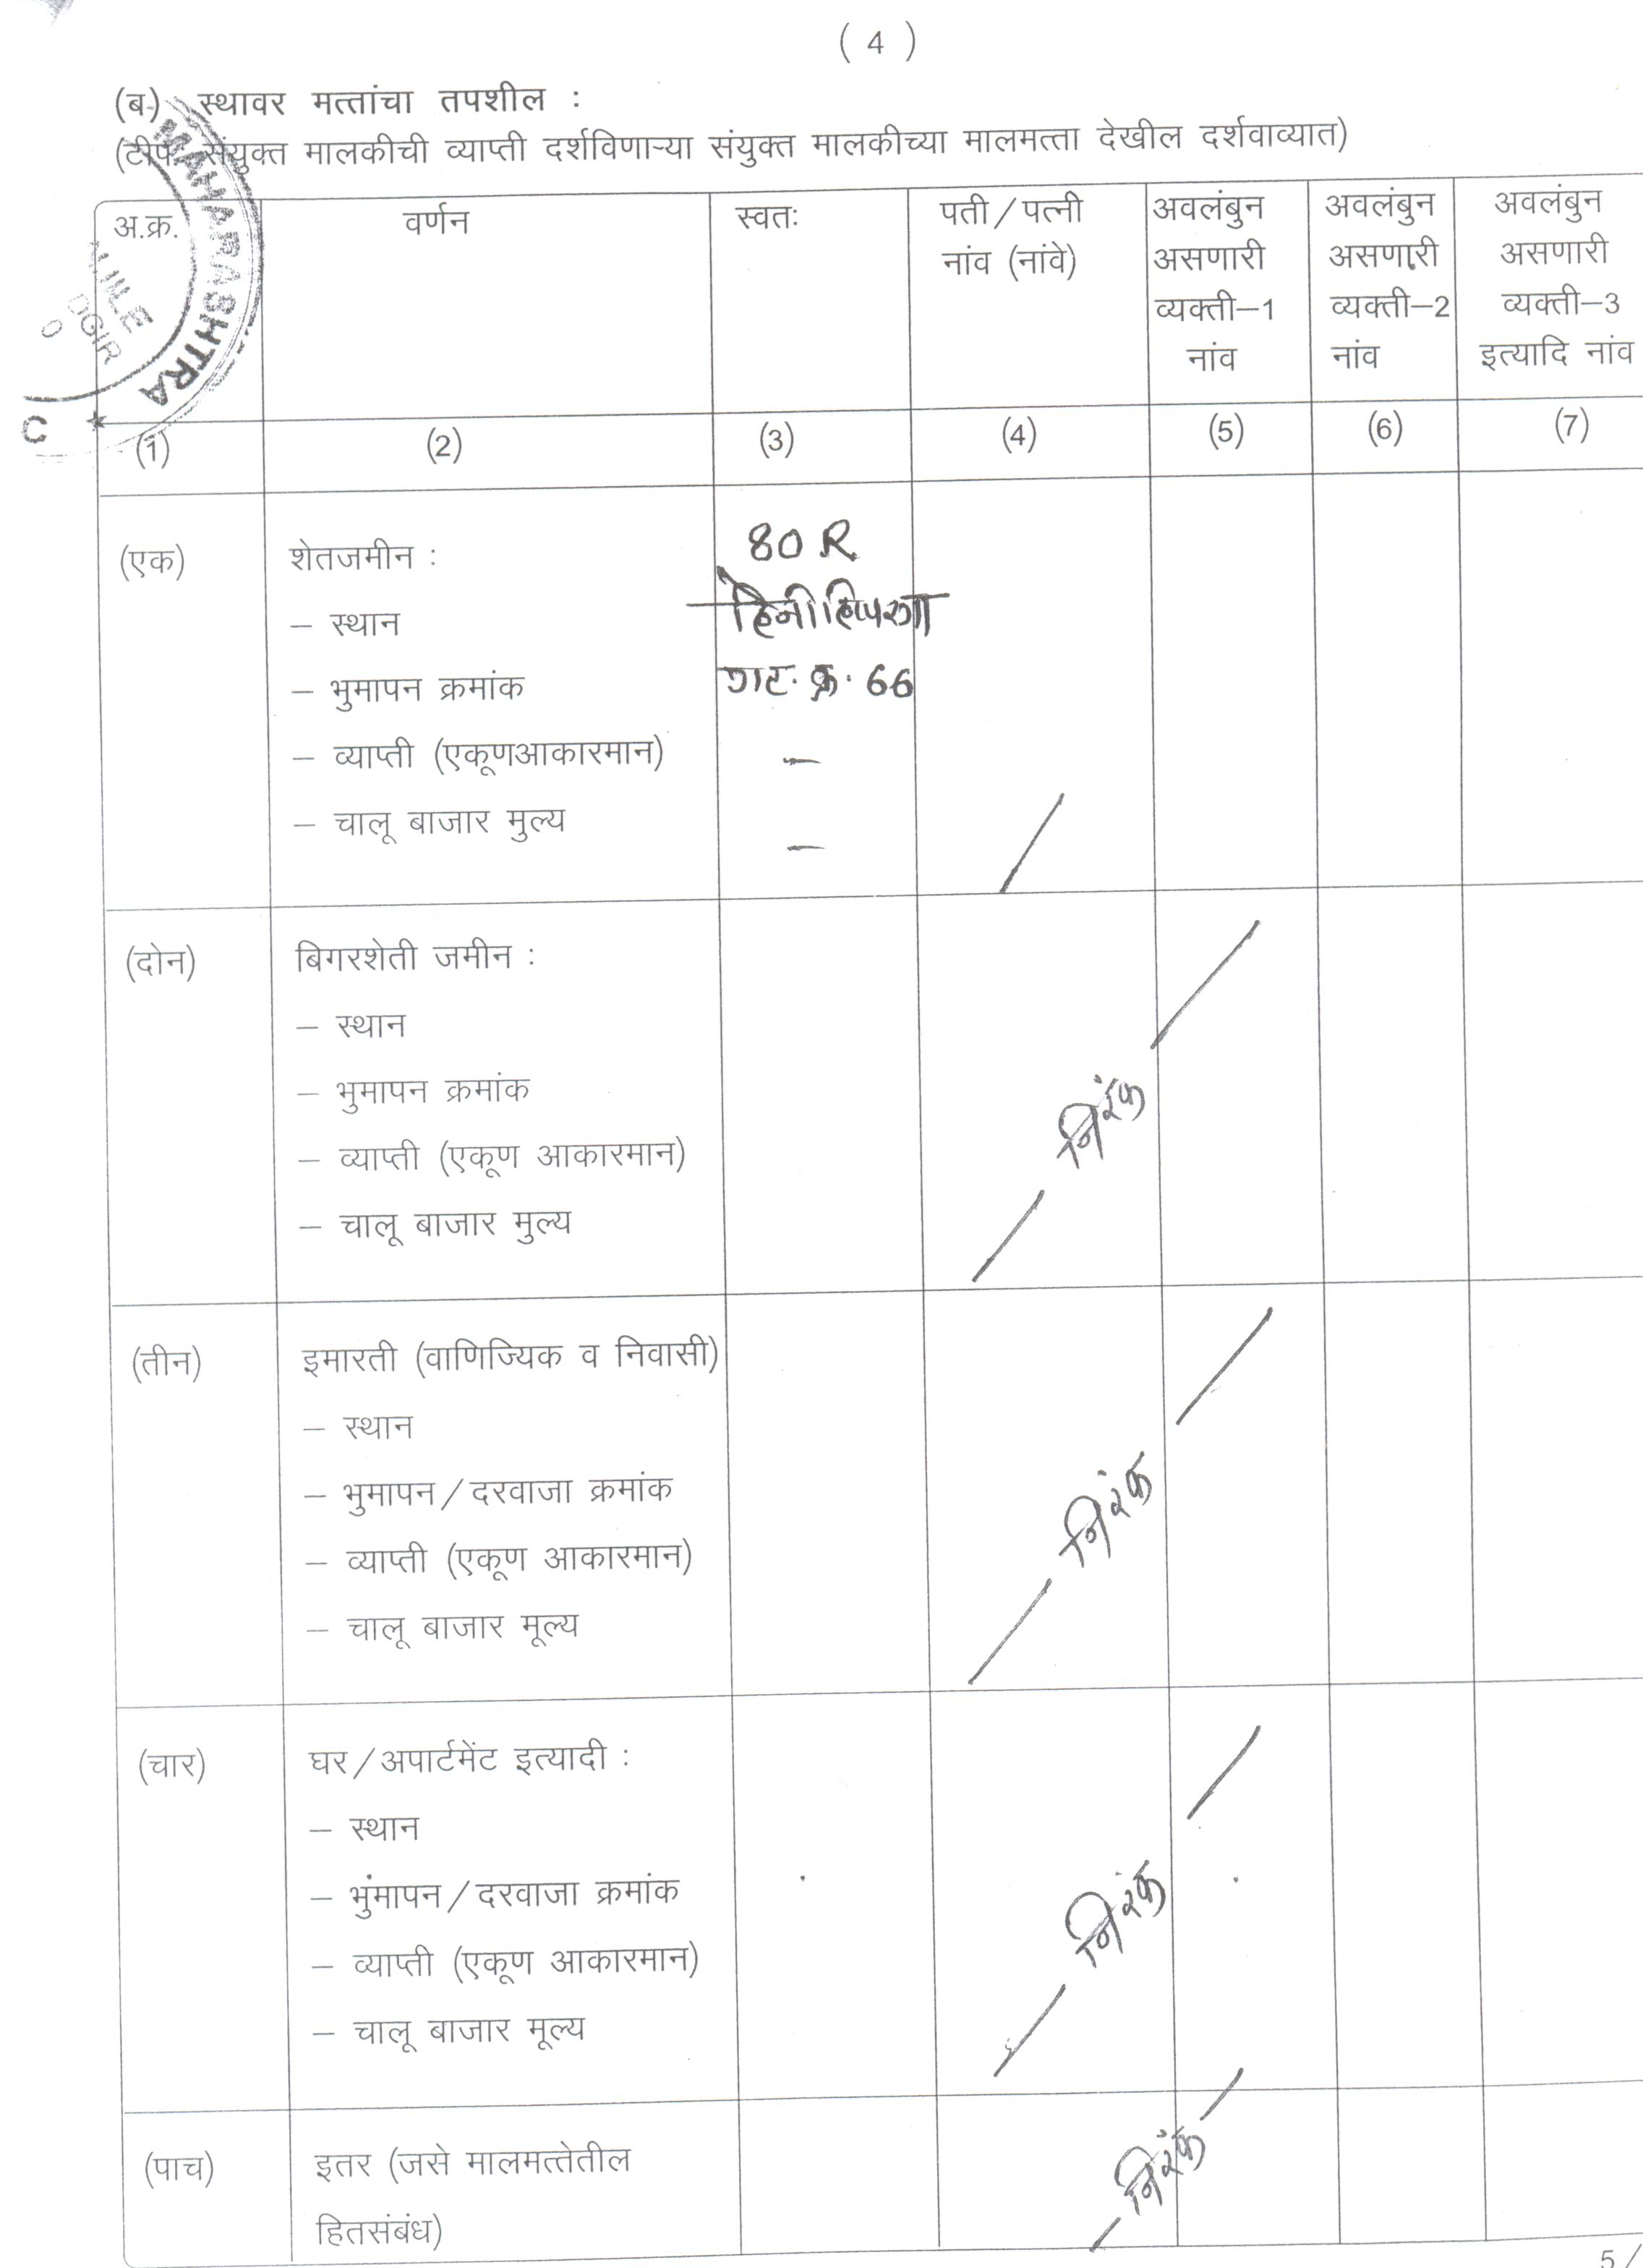 ( 4 )
(ब) स्थावर मत्तांचा तपशील :
(टीप संयुक्त मालकीची व्याप्ती दर्शविणाऱ्या संयुक्त मालकीच्या मालमत्ता देखील दर्शवाव्यात)
अ.क्र. वर्णन स्वतः पती/पत्नी अवलंबुन अवलंबुन अवलंबुन
नांव (नांवे) असणारी असणारी असणारी
व्यक्ती–1 व्यक्ती–2 व्यक्ती–3
नांव नांव इत्यादि नांव
MAHARASHTRA
(1) (2) (3) (4) (5) (6) (7)
(एक) शेतजमीन : 80 R
– स्थान
– भुमापन क्रमांक गट. क्र. 66
– व्याप्ती (एकूणआकारमान) –
– चालू बाजार मुल्य –
(दोन) बिगरशेती जमीन :
– स्थान
– भुमापन क्रमांक निरंक
– व्याप्ती (एकूण आकारमान)
– चालू बाजार मुल्य
(तीन) इमारती (वाणिज्यिक व निवासी)
– स्थान
– भुमापन/दरवाजा क्रमांक निरंक
– व्याप्ती (एकूण आकारमान)
– चालू बाजार मूल्य
(चार) घर/अपार्टमेंट इत्यादी :
– स्थान
– भुंमापन/दरवाजा क्रमांक निरंक
– व्याप्ती (एकूण आकारमान)
– चालू बाजार मूल्य
(पाच) इतर (जसे मालमत्तेतील निरंक
हितसंबंध)
5/